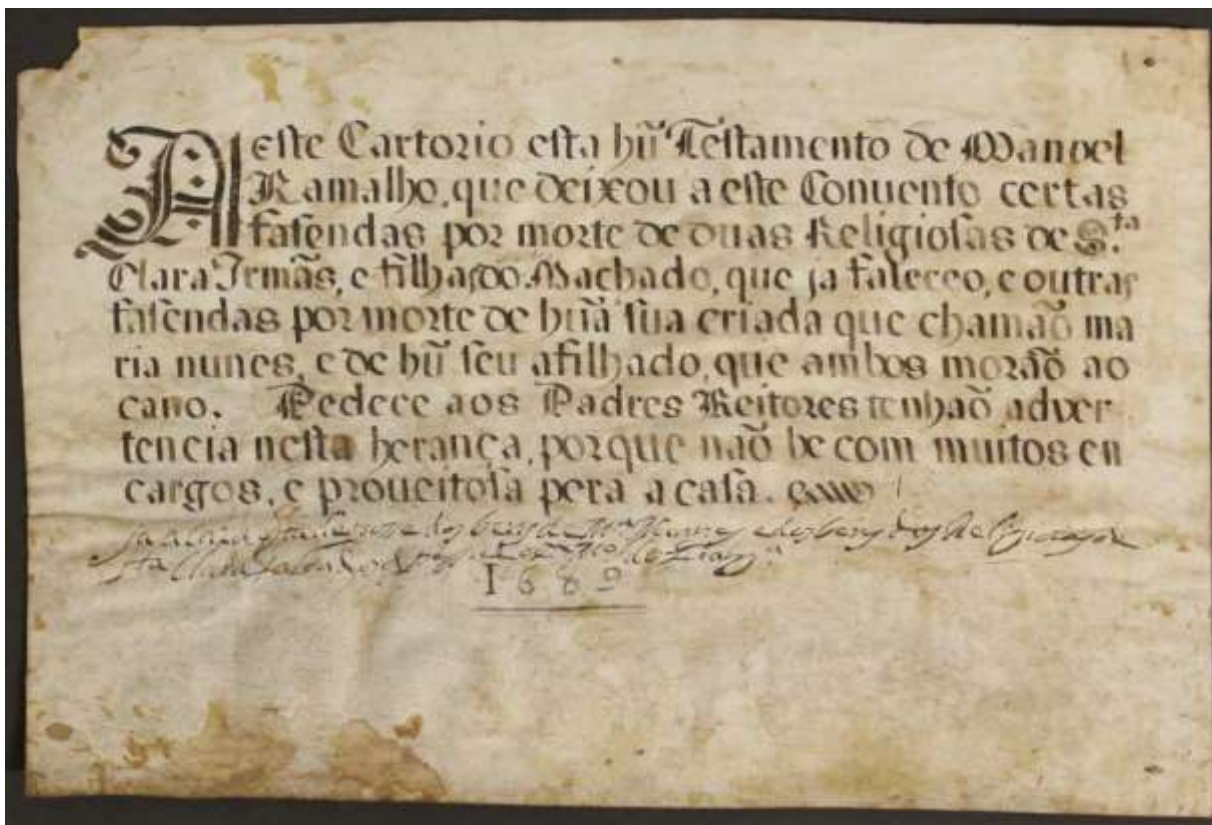 Neste Cartorio esta hũ Testamento de Manoel
Ramalho, que deixou a este Conuento certas
fasendas por morte de duas Religiosas de S.ta
Clara Irmãs, e filhas do Machado, que ja faleceo, e outras
fasendas por morte de hũa sua criada que chamaõ ma
ria nunes, e de hũ seu afilhado, que ambos moraõ ao
cano. Pedece aos Padres Reitores tenhaõ aduer
tencia nesta herança, porque naõ he com muitos en
cargos, e proueitosa pera a casa.
dos bens de M.a Nunes e dos bens das Religiosas de
S.ta Clara
1689